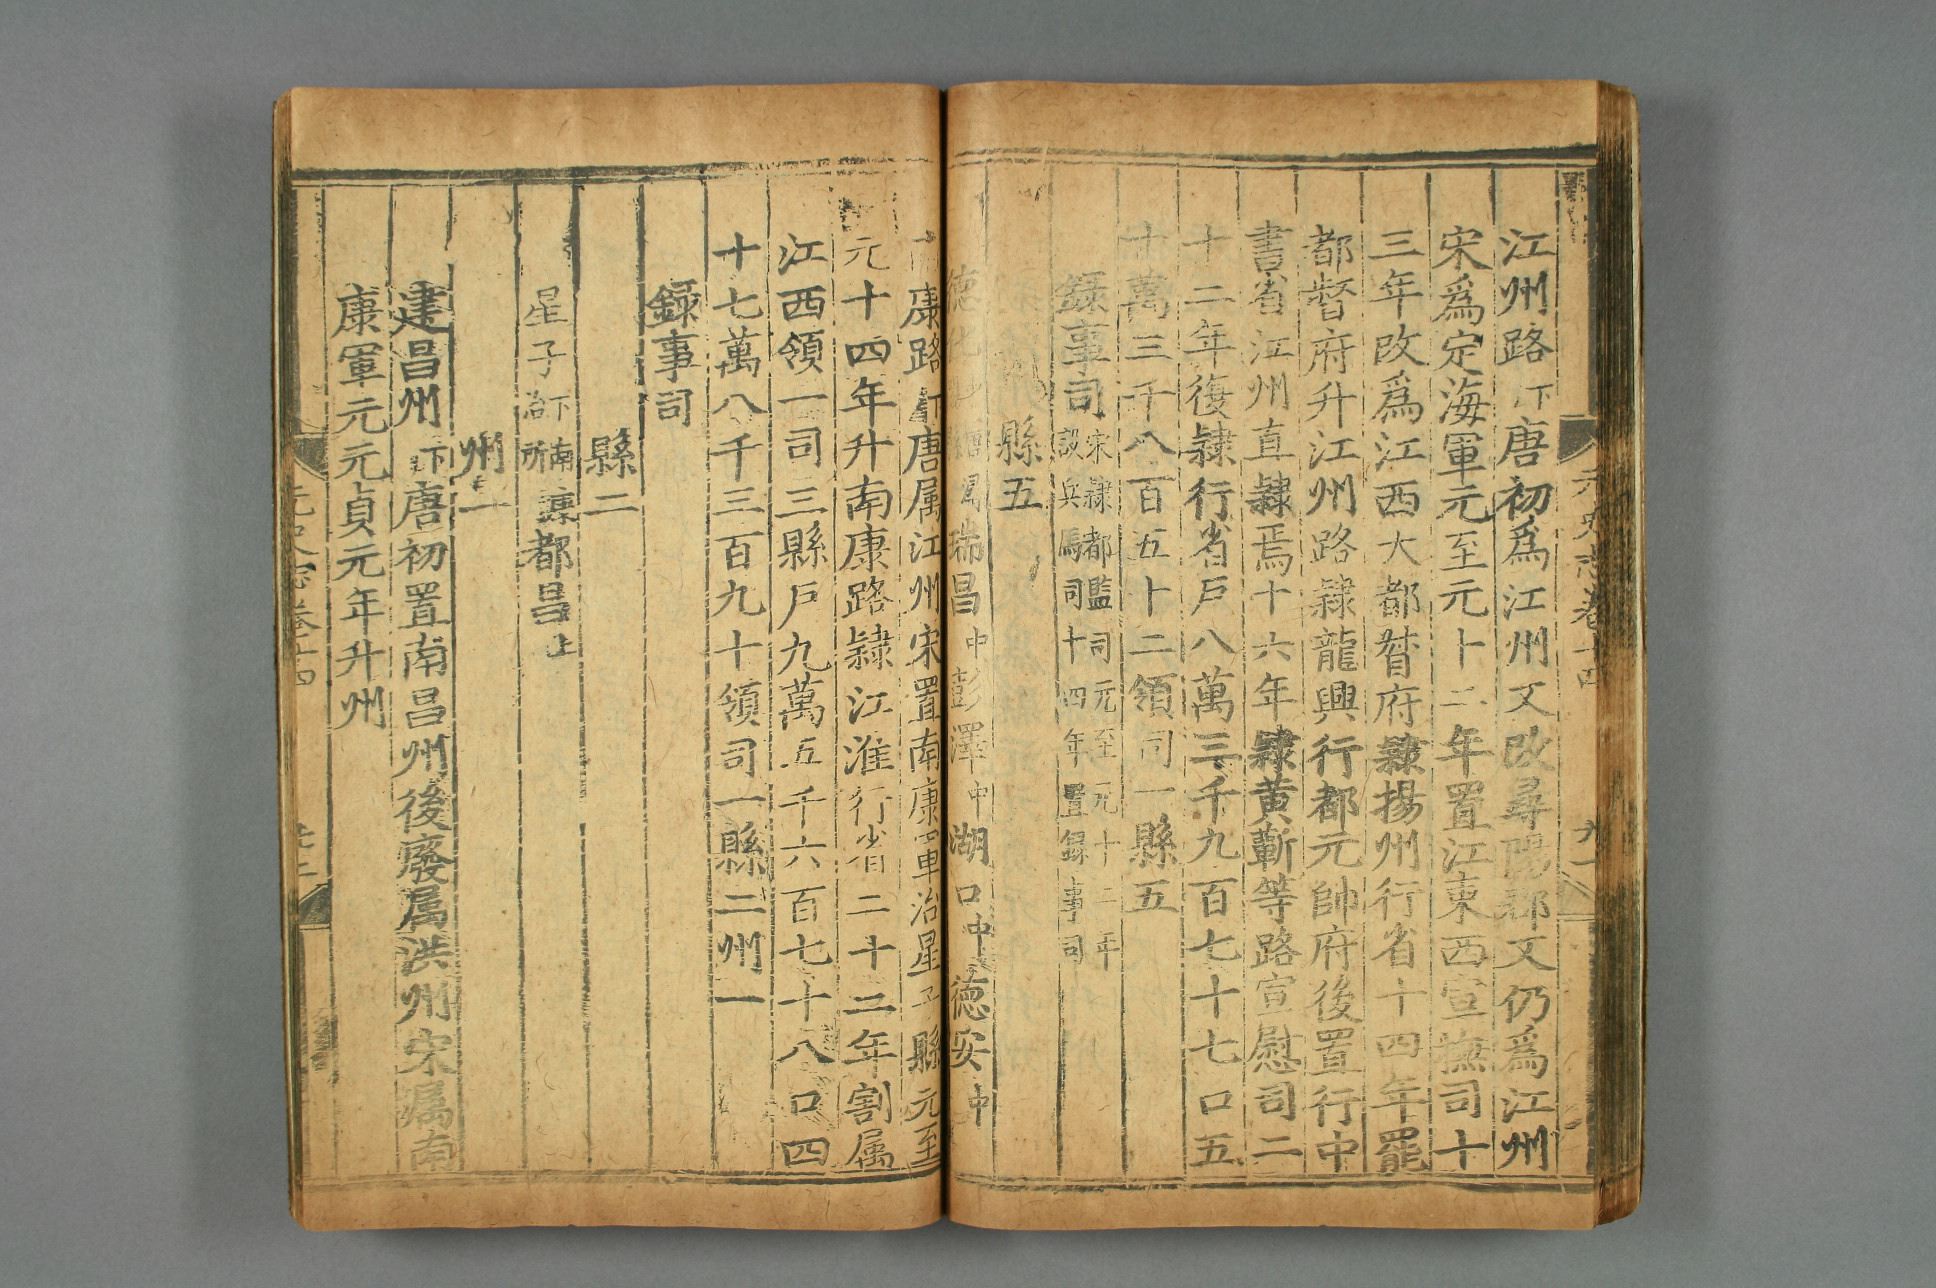 江州路下唐初爲江州又改尋陽郡又仍爲江州
宋爲定海軍元至元十二年置江東西宣撫司十
三年改爲江西大都督府隸揚州行省十四年罷
都督府升江州路隸龍興行都元帥府後置行中
書省江州直隸焉十六年隸黃蘄等路宣慰司二
十二年復隸行省戶八萬三千九百七十七口五
十萬三千八百五十二領司一縣五
錄事司宋隸都監司元至元十二年
設兵馬司十四年置錄事司
縣五
德化瑞昌中彭澤中湖口中德安中
南康路下唐属江州宋置南康軍治星子縣元至
元十四年升南康路隸江淮行省二十二年割属
江西領一司三縣戶九萬五千六百七十八口四
十七萬八千三百九十領司一縣二州一
錄事司
縣二
星子下南康治所都昌上
州一
建昌州下唐初置南昌州後廢属洪州宋属南
康軍元元貞元年升州
元史志卷十四